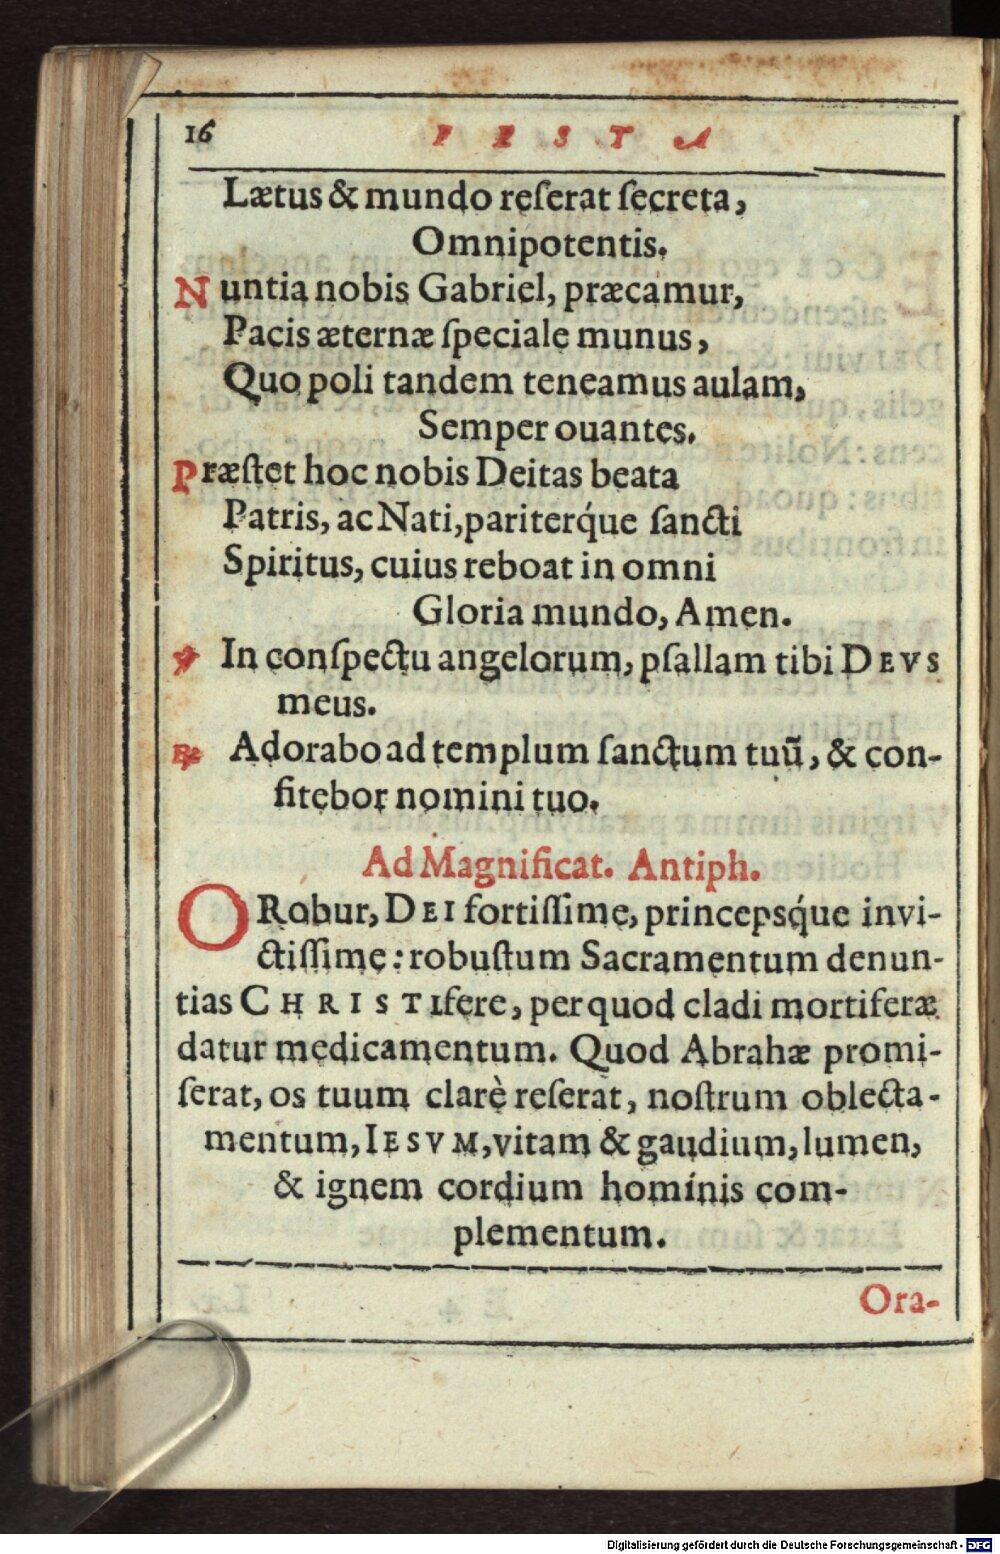 16 F E S T A
Lætus & mundo reſerat ſecreta,
Omnipotentis.
Nuntia nobis Gabriel, præcamur,
Pacis æternæ ſpeciale munus,
Quo poli tandem teneamus aulam,
Semper ouantes.
Præſtet hoc nobis Deitas beata
Patris, ac Nati, pariterq́ue ſancti
Spiritus, cuius reboat in omni
Gloria mundo, Amen.
℣ In conſpectu angelorum, pſallam tibi DEVS
meus.
℟ Adorabo ad templum ſanctum tuū, & con-
fitebor nomini tuo.
Ad Magnificat. Antiph.
O Robur, DEI fortiſſime, princepsq́ue invi-
ctiſſime: robuſtum Sacramentum denun-
tias CHRISTIfere, per quod cladi mortiferæ
datur medicamentum. Quod Abrahæ promi-
ſerat, os tuum clarè reſerat, noſtrum oblecta-
mentum, IESVM, vitam & gaudium, lumen,
& ignem cordium homínis com-
plementum.
Ora-
Digitalisierung gefördert durch die Deutsche Forschungsgemeinschaft - DFG